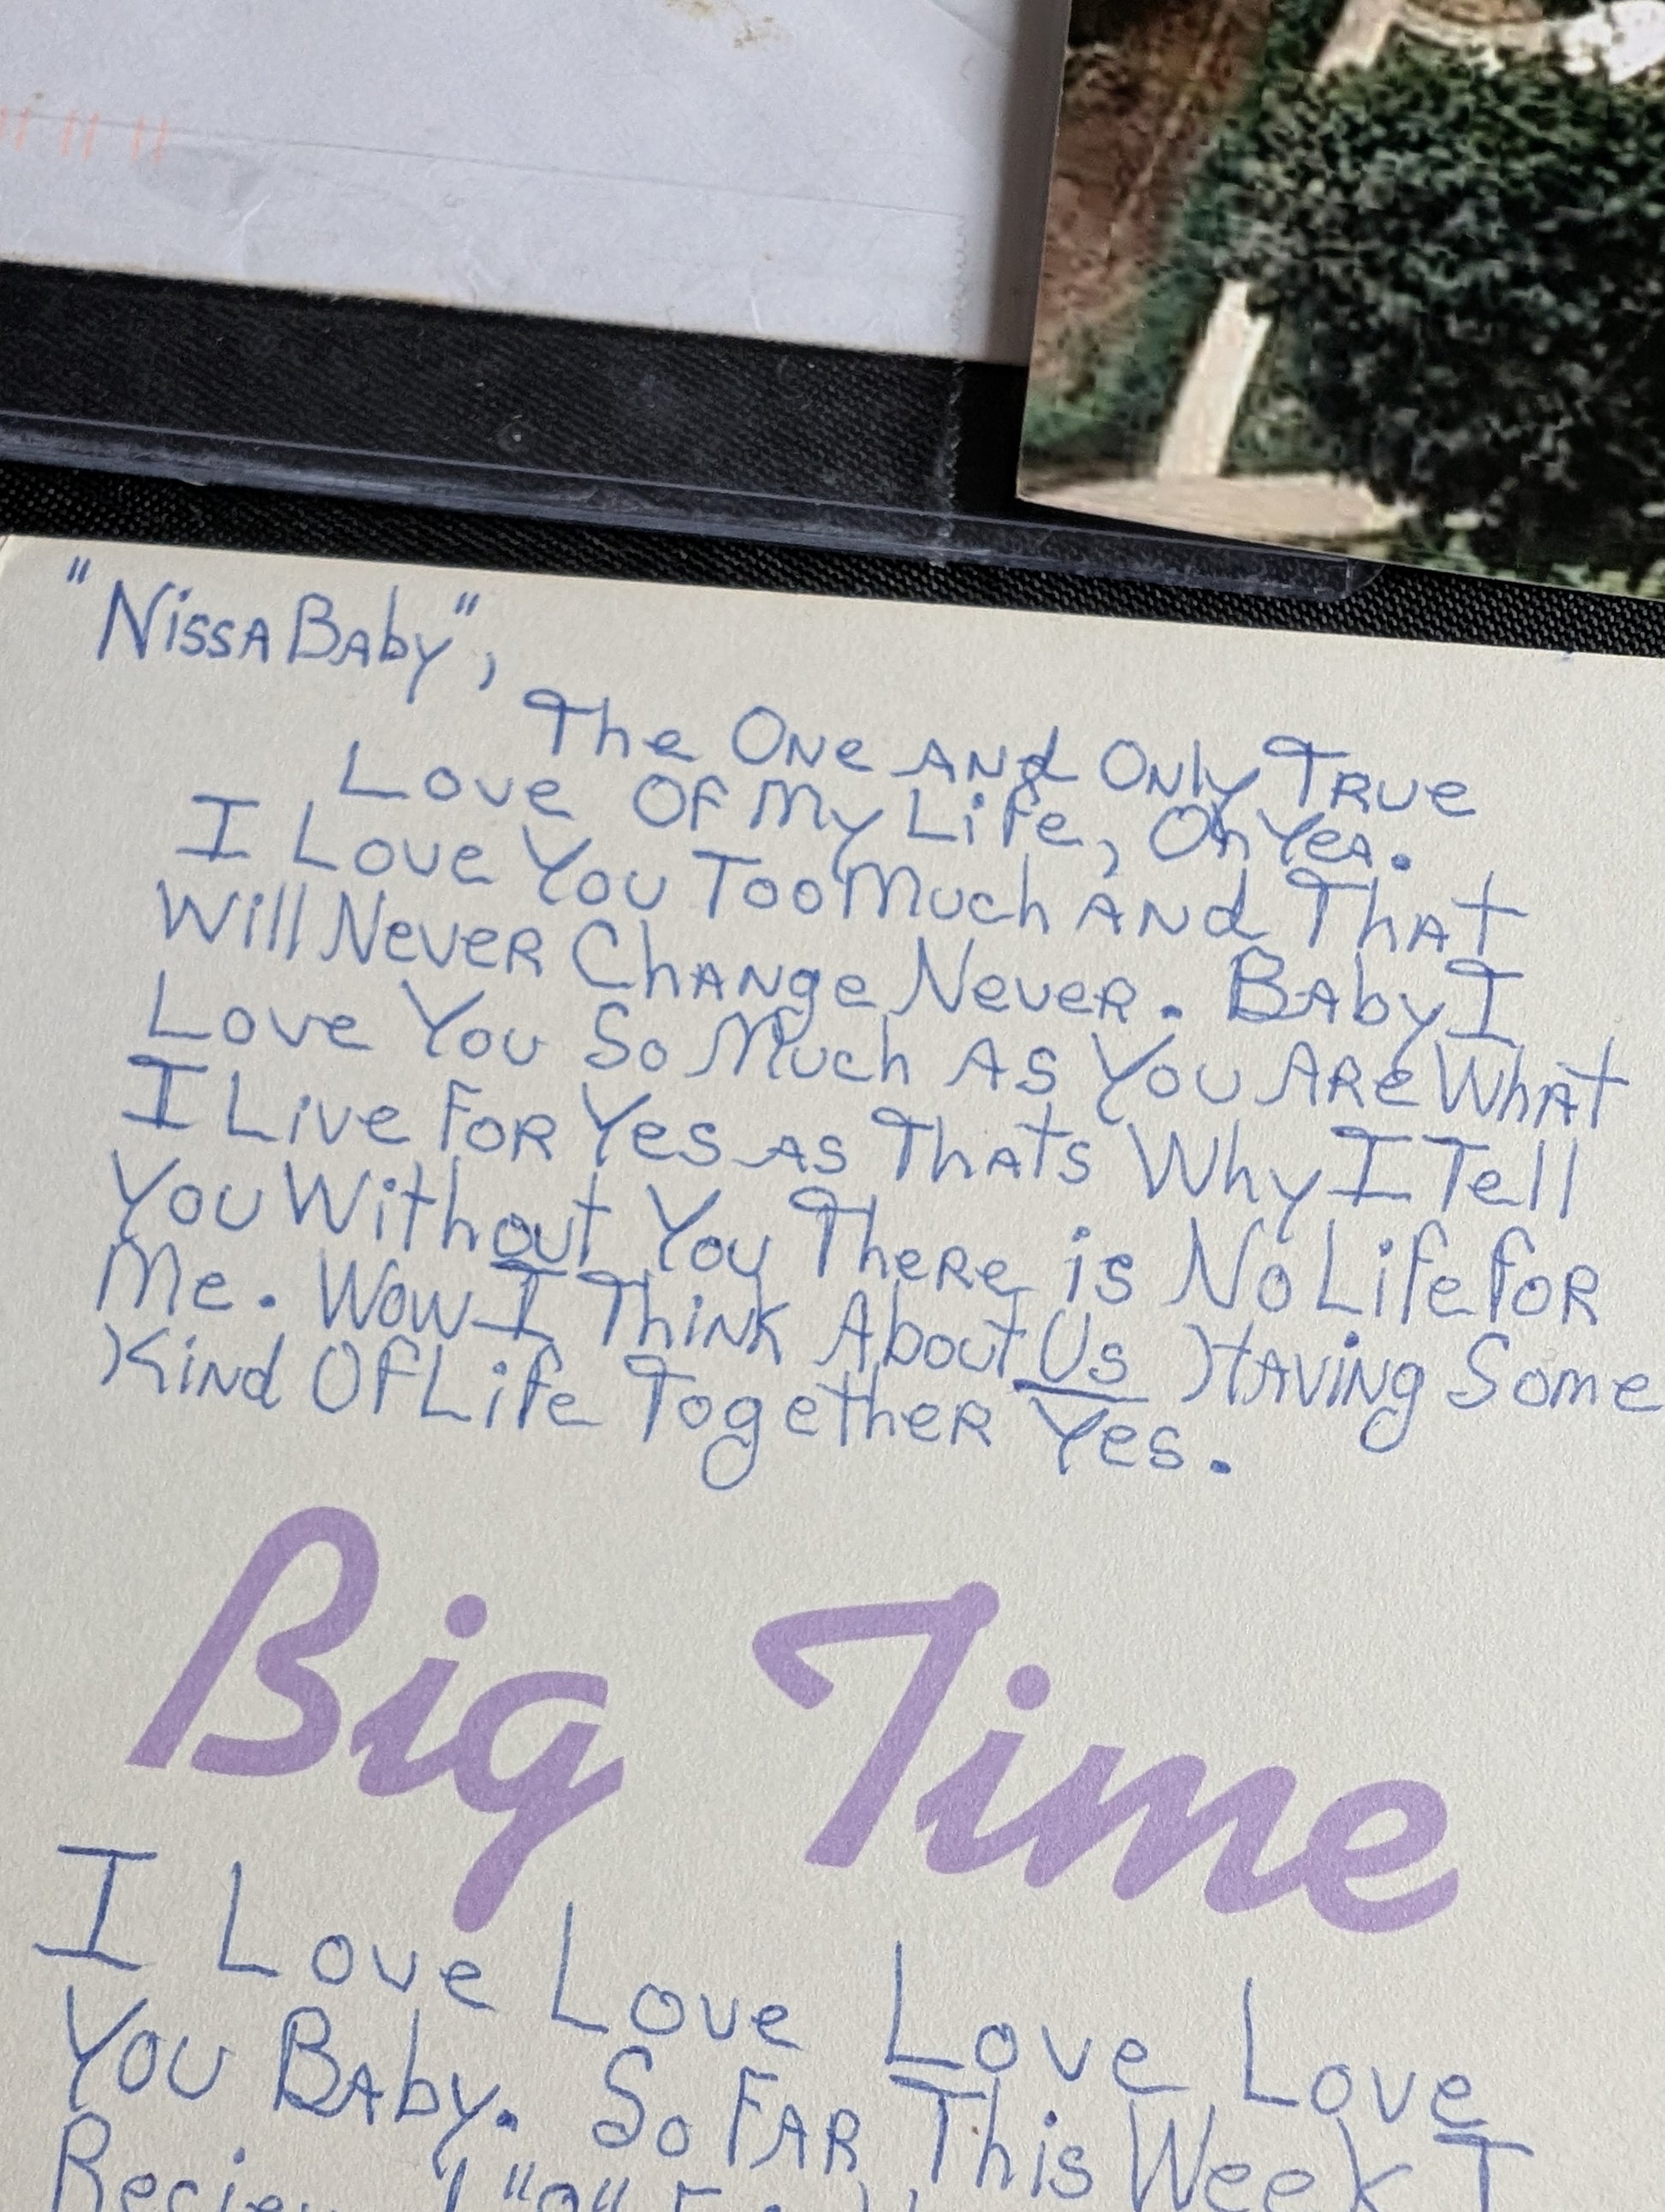 "NissA BAby",
The ONe ANd ONly TRue
Love OF My Life, Oh YeA.
I Love You Too Much ANd ThAt
Will NeveR ChANge NeveR. BAby I
Love You So Much As You ARe WhAt
I Live FoR Yes As ThAts Why I Tell
You Without You TheRe is No Life foR
Me. Wow I ThiNk About Us HAviNg Some
KiNd Of Life TogetheR Yes.
Big Time
I Love Love Love Love
You BAby. So FAR This Week I